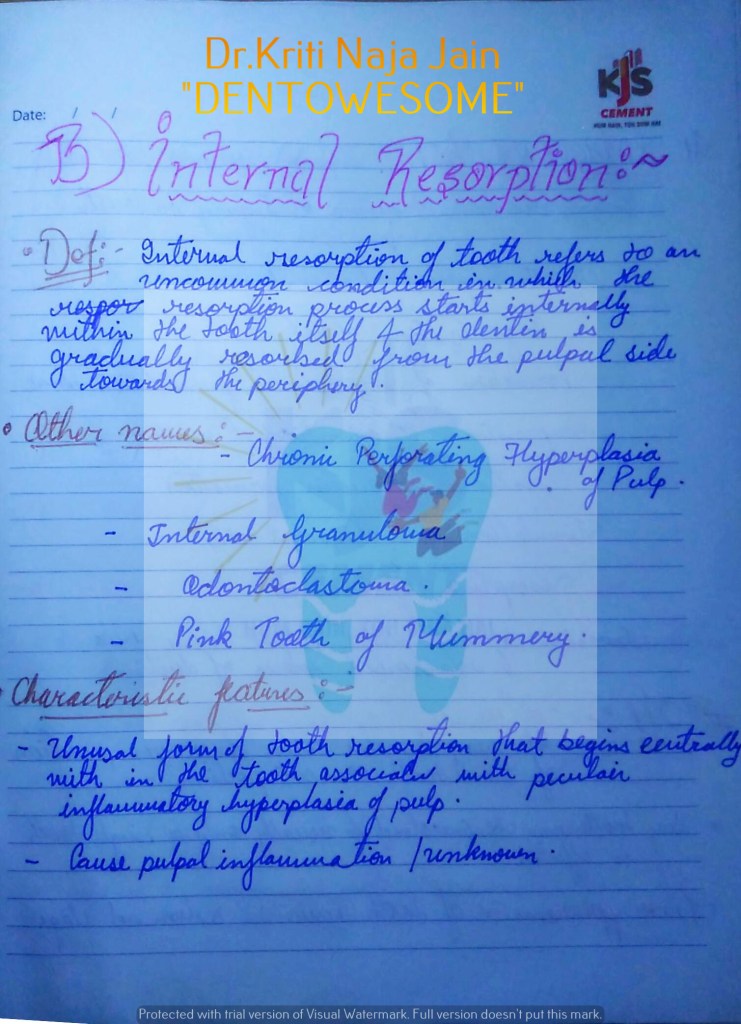 Dr.Kriti Naja Jain
"DENTOWESOME"
KJS
CEMENT
Date: / /
B) Internal Resorption:~
• Def:- Internal resorption of tooth refers to an
uncommon condition in which the
respor resorption process starts internally
within the tooth itself & the dentin is
gradually resorbed from the pulpal side
towards the periphery.
• Other names:-
- Chronic Perforating Hyperplasia
of Pulp.
- Internal Granuloma
- Odontoclastoma.
- Pink Tooth of Mummery.
• Characteristic features:-
- Unusal form of tooth resorption that begins centrally
with in the tooth associated with peculair
inflammatory hyperplasia of pulp.
- Cause pulpal inflammation / unknown.
Protected with trial version of Visual Watermark. Full version doesn't put this mark.